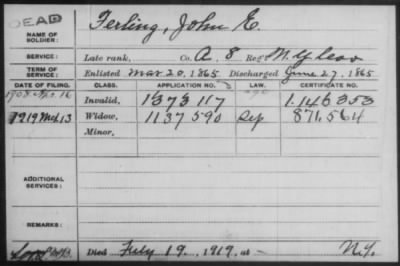 DEAD
NAME OF SOLDIER: Terling, John E.
SERVICE: Late rank, Co. A, 8 Reg't N.Y. Cav
TERM OF SERVICE: Enlisted Mar 20, 1865 Discharged June 27, 1865
DATE OF FILING. CLASS. APPLICATION NO. LAW. CERTIFICATE NO.
1908 16 Invalid, 1373117 1.146353
1919 13 Widow, 1137590 871,564
Minor,
ADDITIONAL SERVICES:
REMARKS:
Died July 19, 1919, at N.Y.